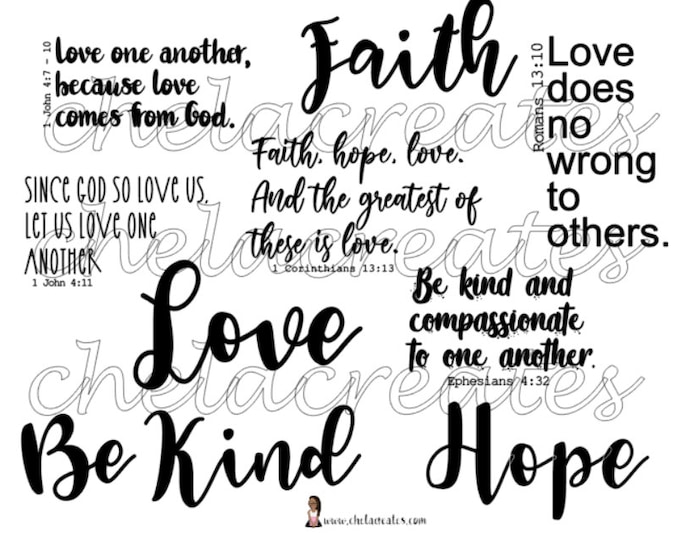 1 John 4:7 - 10
Love one another,
because love
comes from God.
Faith
Romans 13:10
Love
does
no
wrong
to
others.
Faith, hope, love.
And the greatest of
these is love.
1 Corinthians 13:13
SINCE GOD SO LOVE US,
LET US LOVE ONE
ANOTHER
1 John 4:11
Love
Be kind and
compassionate
to one another.
Ephesians 4:32
Be Kind
Hope
chelacreates
chelacreates
chelacreates
www.chelacreates.com